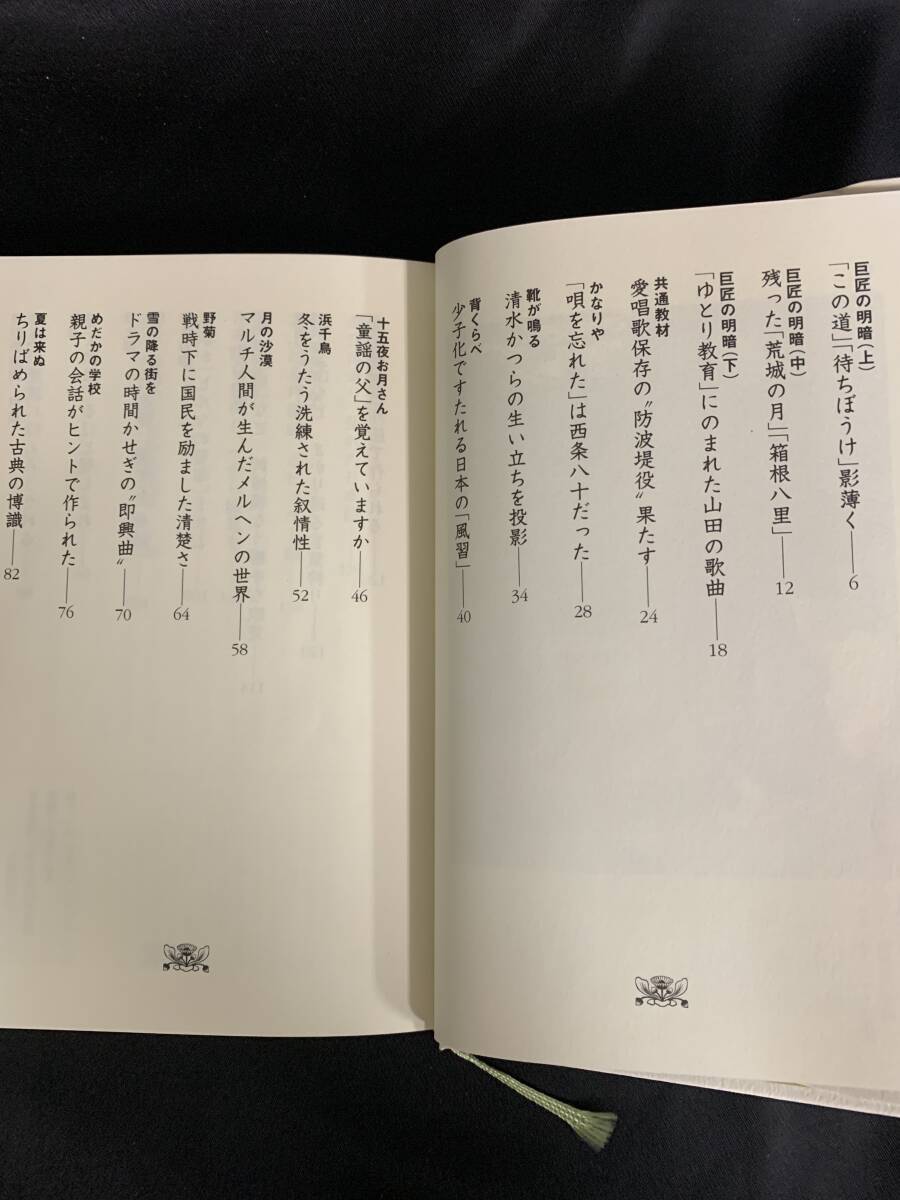 巨匠の明暗（上）
「この道」「待ちぼうけ」影薄く――6
巨匠の明暗（中）
残った「荒城の月」「箱根八里」――12
巨匠の明暗（下）
「ゆとり教育」にのまれた山田の歌曲――18
共通教材
愛唱歌保存の〝防波堤役〟果たす――24
かなりや
「唄を忘れた」は西条八十だった――28
靴が鳴る
清水かつらの生い立ちを投影――34
背くらべ
少子化ですたれる日本の「風習」――40
十五夜お月さん
「童謡の父」を覚えていますか――46
浜千鳥
冬をうたう洗練された叙情性――52
月の沙漠
マルチ人間が生んだメルヘンの世界――58
野菊
戦時下に国民を励ました清楚さ――64
雪の降る街を
ドラマの時間かせぎの〝即興曲〟――70
めだかの学校
親子の会話がヒントで作られた――76
夏は来ぬ
ちりばめられた古典の博識――82